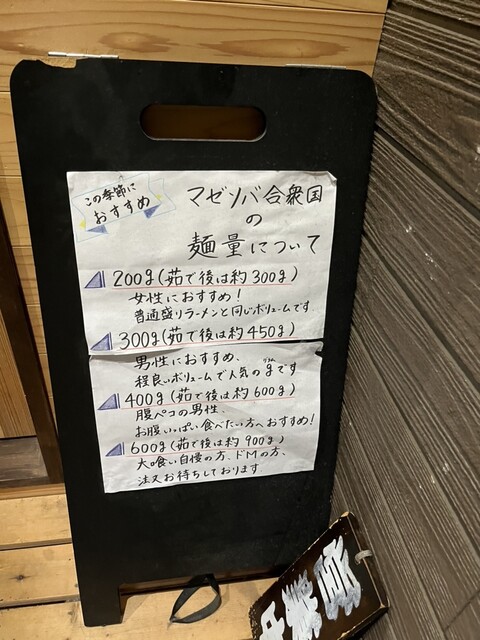 この季節に
おすすめ
マゼソバ合衆国
の
麺量について
200g(茹で後は約300g)
女性におすすめ!
普通盛りラーメンと同じボリュームです
300g(茹で後は約450g)
男性におすすめ、
程良いボリュームで人気のgです
グラム
400g(茹で後は約600g)
腹ペコの男性、
お腹いっぱい食べたい方へおすすめ!
600g(茹で後は約900g)
大喰い自慢の方、ドMの方、
注文お待ちしております
営業中